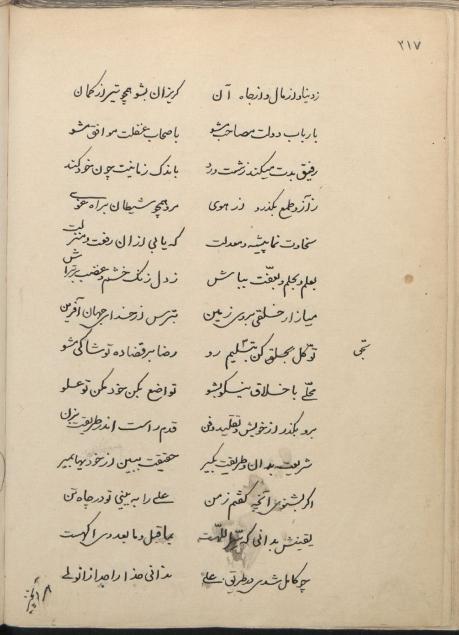 ۲۱۷
ز دینار از مال و از جاه آن گریزان بشو همچو تیر از کمان
بارباب دولت مصاحب مشو باصحاب غفلت موافق مشو
رفیق بدت میکند زشت و رد باندک زمانیت چون خود کند
ز آز و طمع بگذر و از هوی مرو همچو شیطان براه غوی
سخاوت نما پیشه و معدلت که یابی از آن رفعت و منزلت
بعلم و بحلم و بعفت بباش ز دل زنگ خشم و غضب برتراش
میازار خلقی بروی زمین بترس از خدای جهان آفرین
توکل بحق کن بتسلیم رو رضا بر قضا ده تو شاکی مشو
محلی باخلاق نیکو بشو تواضع بکن خود مکن تو علو
برو بگذر از خویش و تقلید و فن قدم راست اندر طریقت بزن
شریعت بدان و طریقت بگیر حقیقت ببین از خودیها بمیر
اگر بشنوی آنچه گفتم ز من علی را به بینی تو در جاه تن
یقینش بدانی که سر اللهست بماقبل و مابعد وی آگهست
چو کامل شدی در طریق علی بدانی خدا را جدا از ولی